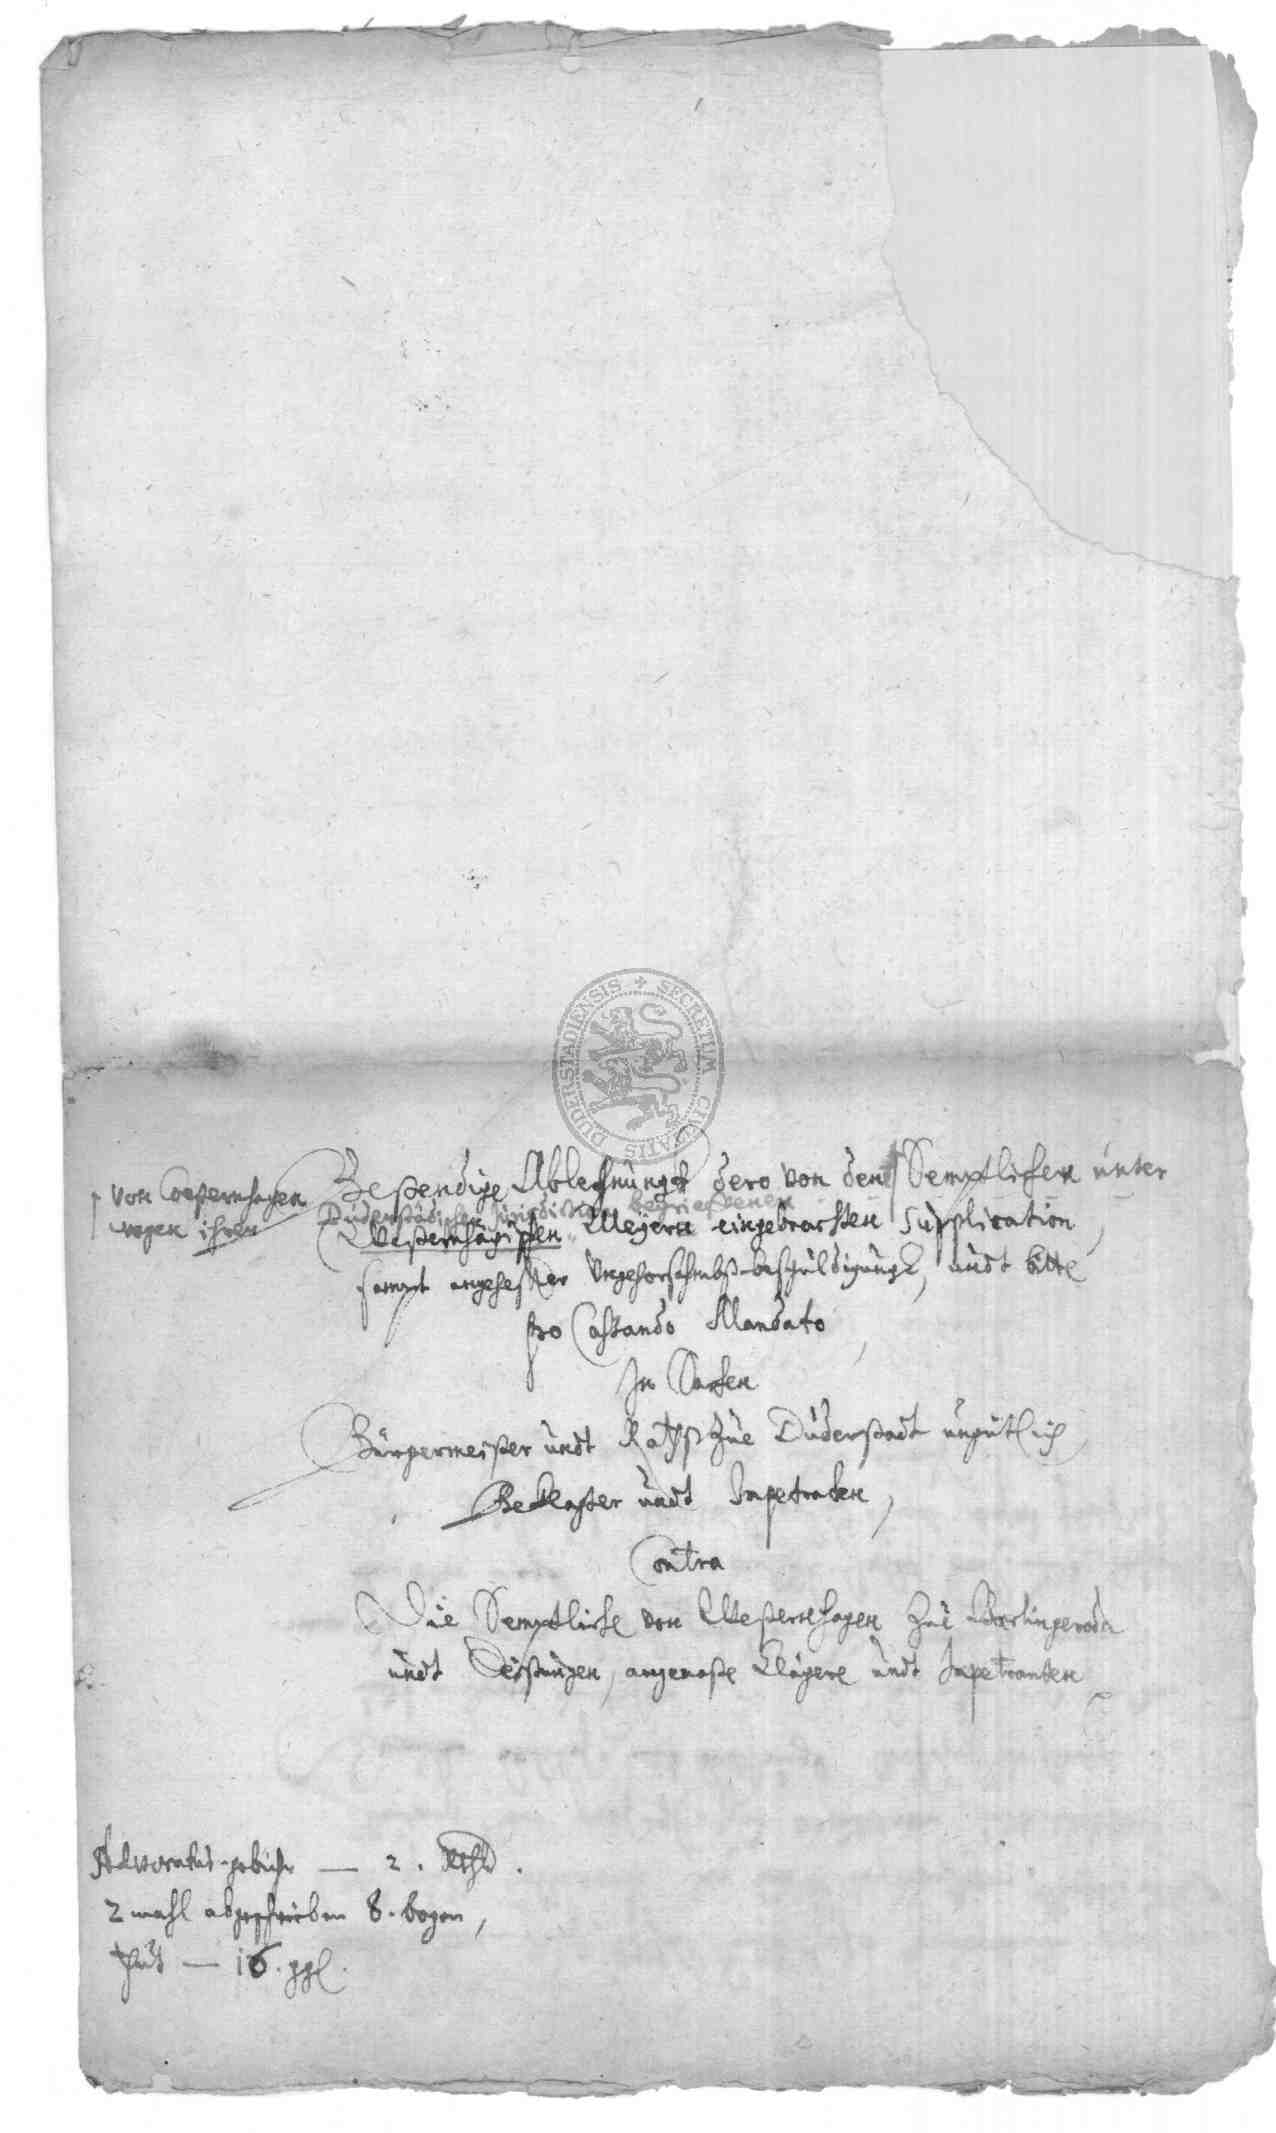 SECRETUM CIVITATIS DUDERSTADIENSIS
von Westernhagen
wegen ihren
Bestendige Ablehnungk dero von den Semptlichen unter
Duderstädischer Jurisdiction begriefenen
Westernhagischen Meyern eingebrachten Supplication,
sampt angeheffter Ungehorsahmbß-beschüldigungk, undt bitte
pro Cassando Mandato,
In Sachen
Bürgermeister undt Raths Zue Duderstadt ungütlich
Beklagter undt Impetraten,
Contra
Die Semptliche von Westernhagen Zue Berlingeroda
undt Teistungen, angemaste Klägere undt Impetranten
Advocatus-gebühr — 2. Rthlr.
2 mahl abgeschrieben 8. bogen,
— 16. ggl.